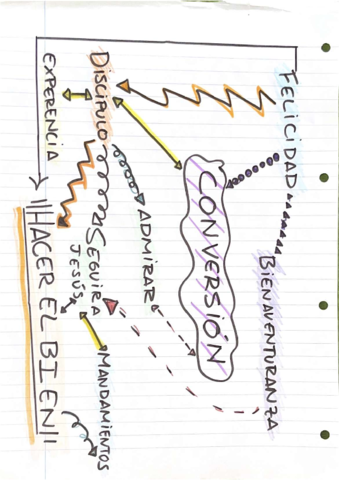 FELICIDAD
BIENAVENTURANZA
CONVERSIÓN
ADMIRAR
DISCIPULO
SEGUIR A
JESÚS
MANDAMIENTOS
EXPERENCIA
¡¡HACER EL BIEN!!